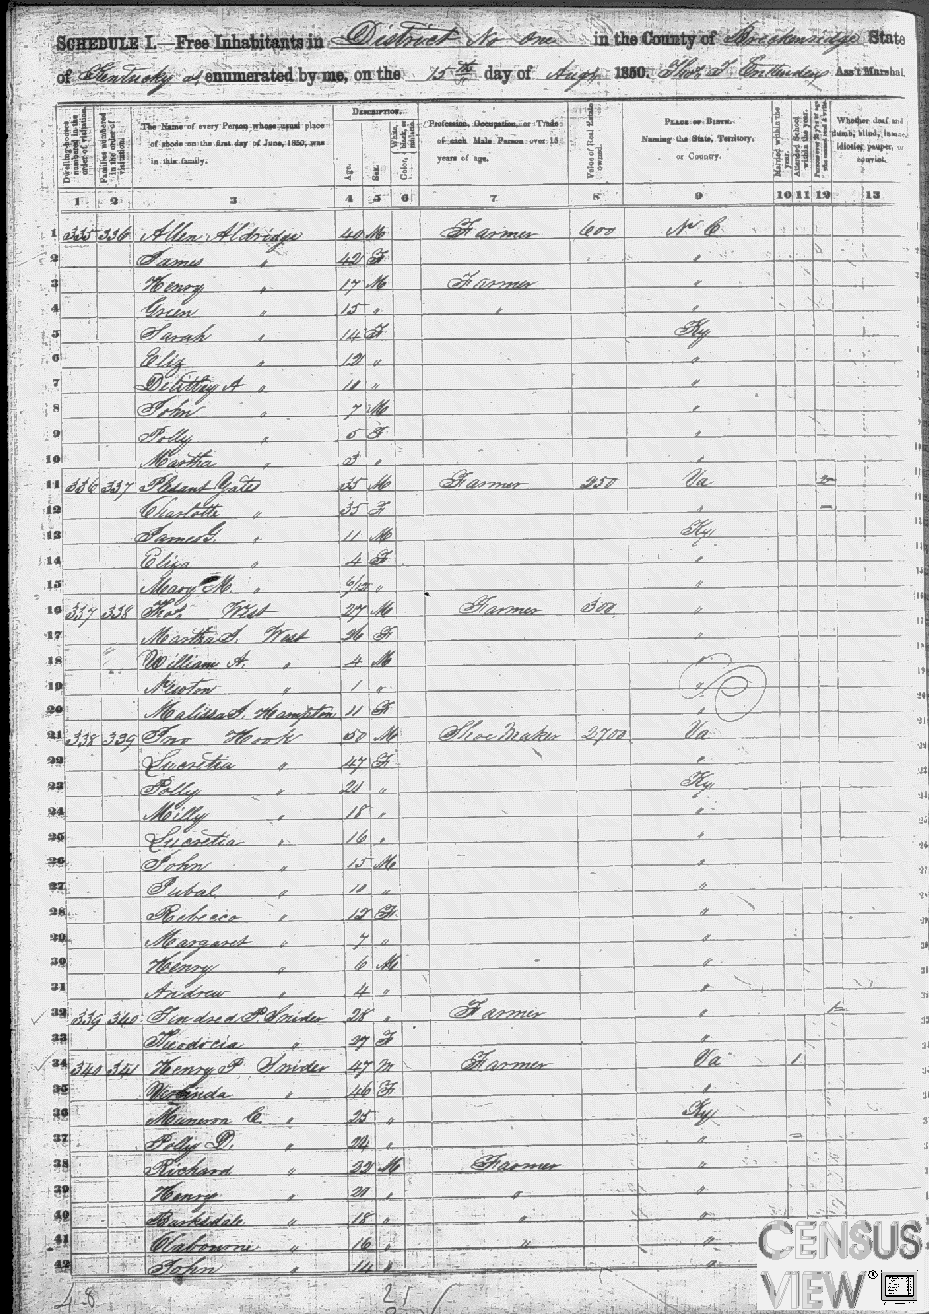 SCHEDULE I.—Free Inhabitants in District No One in the County of Breckenridge State
of Kentucky enumerated by me, on the 15th day of Augt 1850. Thos. J. Ass't Marshal.
Dwelling-houses numbered in the order of visitation.
Families numbered in the order of visitation.
The Name of every Person whose usual place of abode on the first day of June, 1850, was in this family.
DESCRIPTION.
Age.
Sex.
White, black, or mulatto.
Color,
Profession, Occupation, or Trade of each Male Person over 15 years of age.
Value of Real Estate owned.
PLACE OF BIRTH. Naming the State, Territory, or Country.
Married within the year.
Attended School within the year.
Whether deaf and dumb, blind, insane, idiotic, pauper, or convict.
1 2 3 4 5 6 7 8 9 10 11 12 13
1 335 336 Allen Aldridge 40 M Farmer 600 N C
2 James " 42 F "
3 Henry " 17 M Farmer "
4 Green " 15 " " "
5 Sarah " 14 F Ky
6 Eliz " 12 " "
7 A " 10 " "
8 John " 7 M "
9 Polly " 5 F "
10 Martha " 3 " "
11 336 337 Plesant Yates 35 M Farmer 250 Va
12 Charlotte " 35 F "
13 James G. " 11 M Ky
14 Eliza " 4 F "
15 Mary M. " 6/12 " "
16 337 338 Thos. West 27 M Farmer 300 "
17 Martha S. West 26 F "
18 William A. " 4 M "
19 Newton " 1 " "
20 Malissa A. Hampton 11 F "
21 338 339 Jno Hook 50 M Shoe Maker 2700 Va
22 Lucretia " 47 F "
23 Polly " 21 " Ky
24 Milly " 18 " "
25 Lucretia " 16 " "
26 John " 15 M "
27 Jubal " 10 " "
28 Rebecca " 12 F "
29 Margaret " 7 " "
30 Henry " 6 M "
31 Andrew " 4 " "
32 339 340 P. Snider 28 " Farmer "
33 Theodocia " 27 F "
34 340 341 Henry P Snider 47 M Farmer Va 1
35 " 46 F "
36 C. " 25 " Ky
37 Polly D. " 24 " "
38 Richard " 22 M Farmer "
39 Henry " 20 " " "
40 Barksdale " 18 " " "
41 " 16 " " "
42 John " 14 " "
48
CENSUS
VIEW